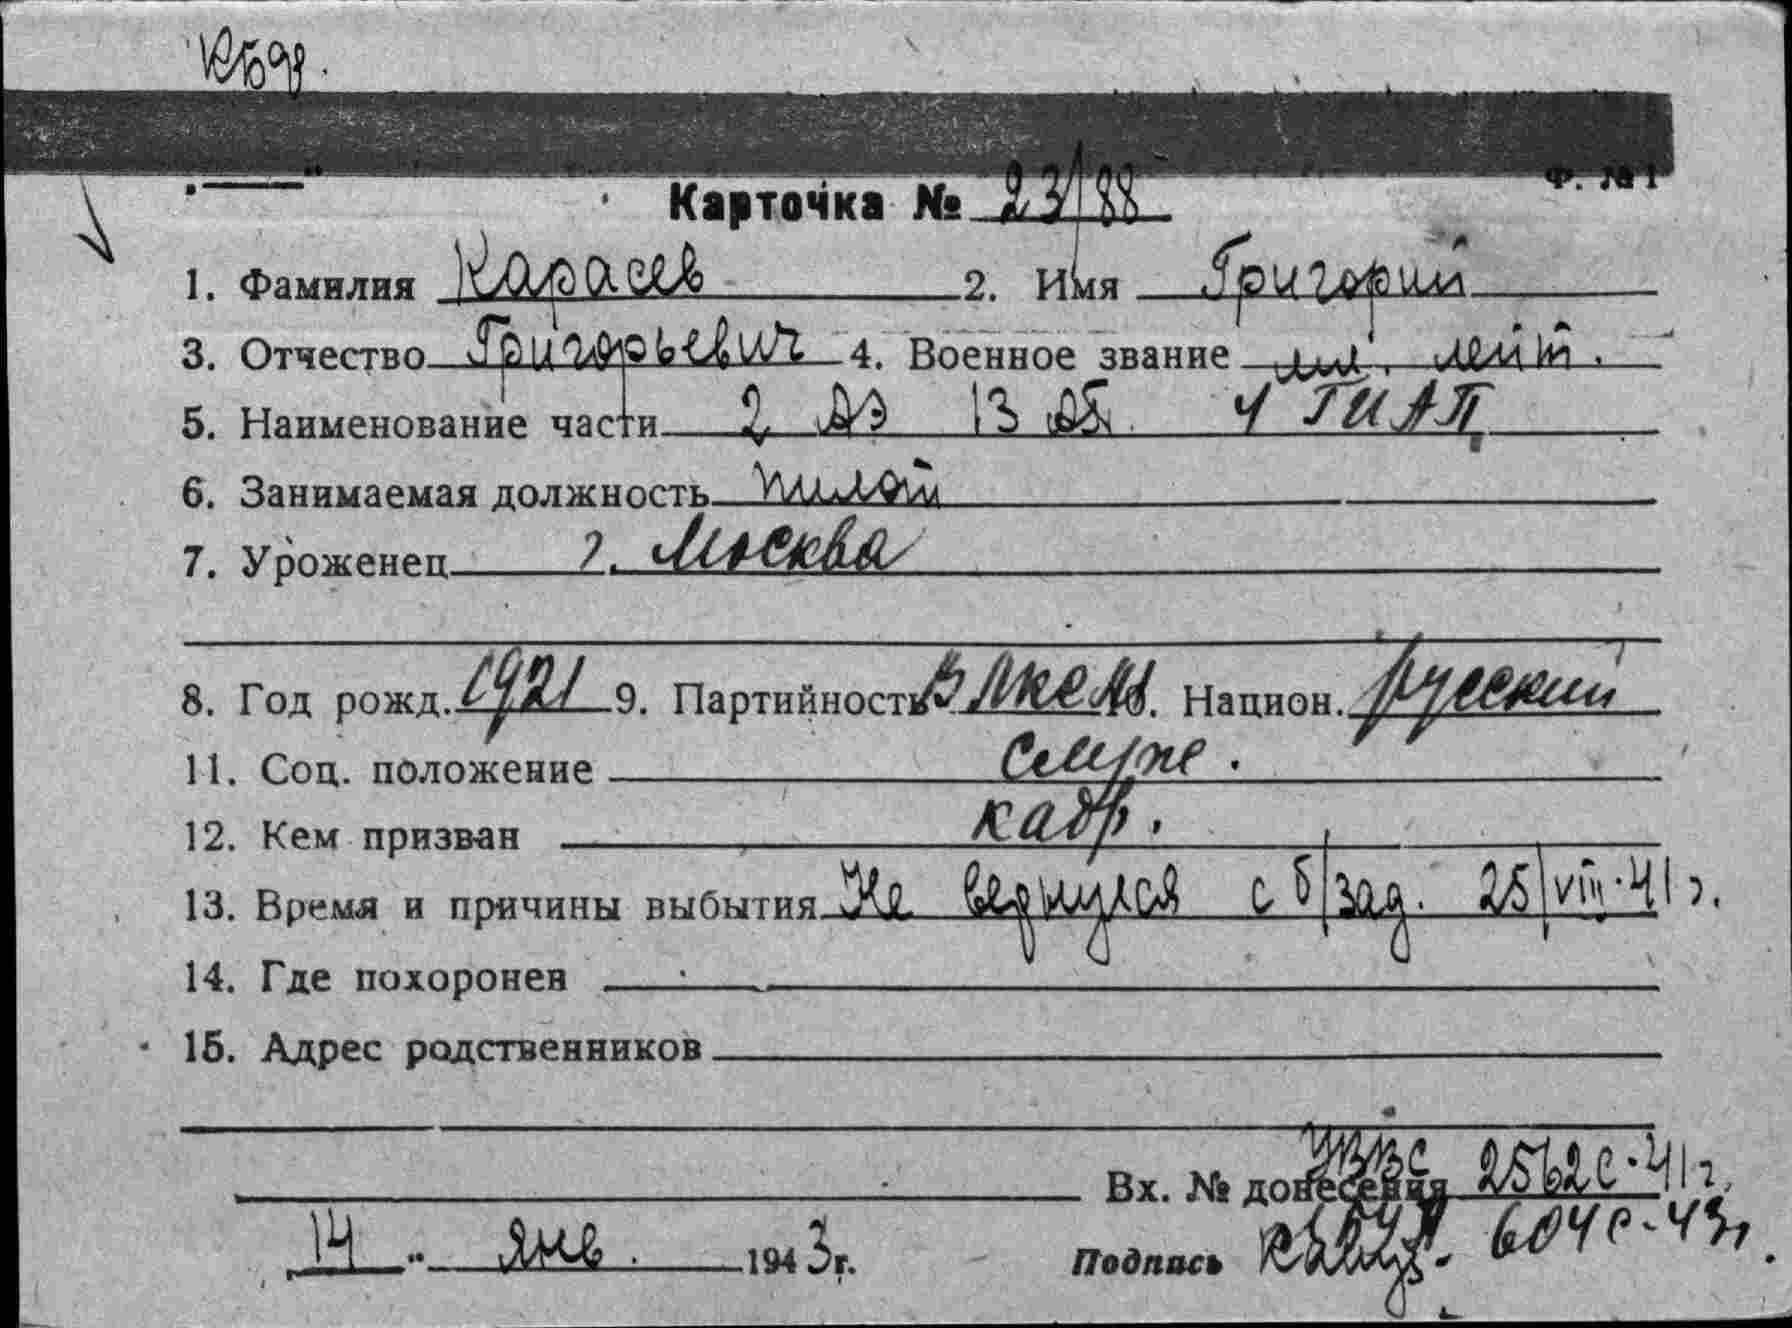 Ф. № 1
Карточка № 23/88
1. Фамилия Карасев 2. Имя Григорий
3. Отчество Григорьевич 4. Военное звание мл. лейт.
5. Наименование части 2 АЭ 13 АБ 4 ГИАП
6. Занимаемая должность пилот
7. Уроженец г. Москва
8. Год рожд. 1921 9. Партийность ВЛКСМ. Национ. русский
11. Соц. положение служ.
12. Кем призван кадр.
13. Время и причины выбытия Не вернулся с б/зад. 25/VIII-41 г.
14. Где похоронен
15. Адрес родственников
Вх. № донесения УВВС 2562с-41г.
14 янв. 1943 г. Подпись 604с-43г.